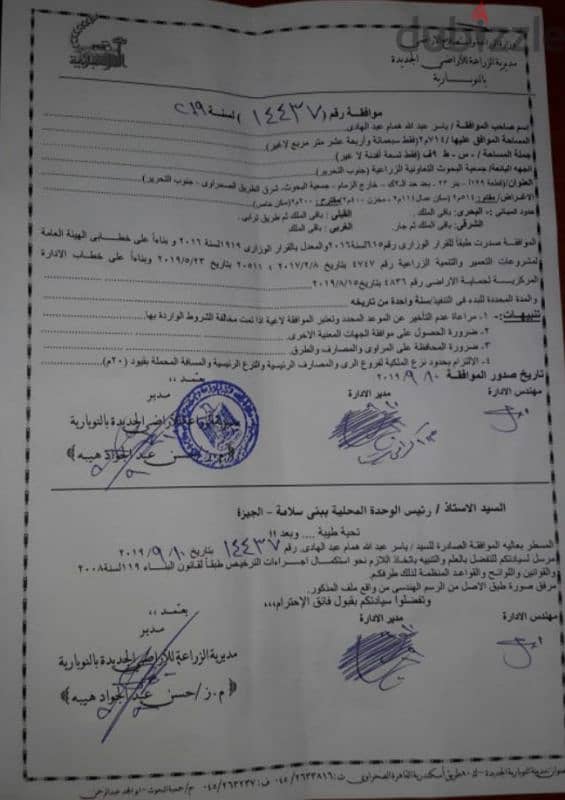 dubizzle
مديرية الزراعة للأراضى الجديدة
بالنوبارية
موافقة رقم (١٤٤٣٧) لسنة ٢٠١٩
إسم صاحب الموافقة / ياسر عبد الله همام عبد الهادى
المساحة الموافق عليها / ٧١٤م٢ (فقط سبعمائة وأربعة عشر متر مربع لاغير)
جملة المساحة / - س - ط ٩ف (فقط تسعة أفدنة لا غير)
الجهه البائعة/ جمعية البحوث التعاونية الزراعية (جنوب التحرير)
العنوان/ (قطعة ١٢٩) - بئر ٢٣ - بعد حد الـ٢ك - خارج الزمام - جمعية البحوث- شرق الطريق الصحراوى - جنوب التحرير)
الاغراض/ مقنن ٥١٤م٢ (سكن عمال ١١٤م٢ - مخزن ٤٠٠م٢) مقترح: ٢٠٠م٢ (سكن خاص)
حدود المبانى :- البحرى: باقى الملك . القبلى : باقى الملك ثم طريق ترابي .
الشرقي: باقى الملك ثم جار الغربي : باقى الملك .
الموافقة صدرت طبقاً للقرار الوزارى رقم ٦١٥ لسنة ٢٠١٦ والمعدل بالقرار الوزارى ١٩١٩ لسنة ٢٠١٦ و بناءاً على خطابى الهيئة العامة
لمشروعات التعمير والتنمية الزراعية رقم ٤٧٤٧ بتاريخ ٢٠١٧/٢/٨ ، ٢٠٥١١ بتاريخ ٢٠١٩/٥/٢٣ وبناءاً على خطاب الادارة
المركزية لحماية الاراضى رقم ٤٨٣٦ بتاريخ ٢٠١٩/٨/١٥
والمدة المحددة للبدء فى التنفيذ/ سنة واحدة من تاريخه
تنبيهات:- ١- مراعاة عدم التأخير عن الموعد المحدد وتعتبر الموافقة لاغية اذا تمت مخالفة الشروط الواردة بها.
٢- ضرورة الحصول على موافقة الجهات المعنية الاخرى.
٣- ضرورة المحافظة على المراوى والمصارف والطرق.
٤- الالتزام بحدود نزع الملكية لفروع الرى والمصارف الرئيسية والترع الرئيسية والمسافة المحملة بقيود (٢٠م)
تاريخ صدور الموافقة ٢٠١٩/٩/١٠
مهندس الادارة مدير الادارة يعتمد ،،
مدير
مديرية الزراعة للأراضى الجديدة بالنوبارية
(م.ز/ حسن عبد الجواد هيبه)
السيد الاستاذ / رئيس الوحدة المحلية ببنى سلامة - الجيزة
تحية طيبة .... وبعد !!
المسطر بعاليه الموافقة الصادرة للسيد / ياسر عبد الله همام عبد الهادى. رقم ١٤٤٣٧ بتاريخ ٢٠١٩/٩/١٠
مرسل لسيادتكم للتفضل بالعلم والتنبيه باتخاذ اللازم نحو استكمال اجراءات الترخيص طبقاً لقانون البناء ١١٩ لسنة ٢٠٠٨
والقوانين واللوائح والقواعد المنظمة لذلك طرفكم.
مرفق صورة طبق الاصل من الرسم الهندسى من واقع ملف المذكور.
وتفضلوا سيادتكم بقبول فائق الإحترام،،،
مهندس الادارة مدير الادارة يعتمد ،،
مدير
مديرية الزراعة للأراضى الجديدة بالنوبارية
(م.ز/ حسن عبد الجواد هيبه)